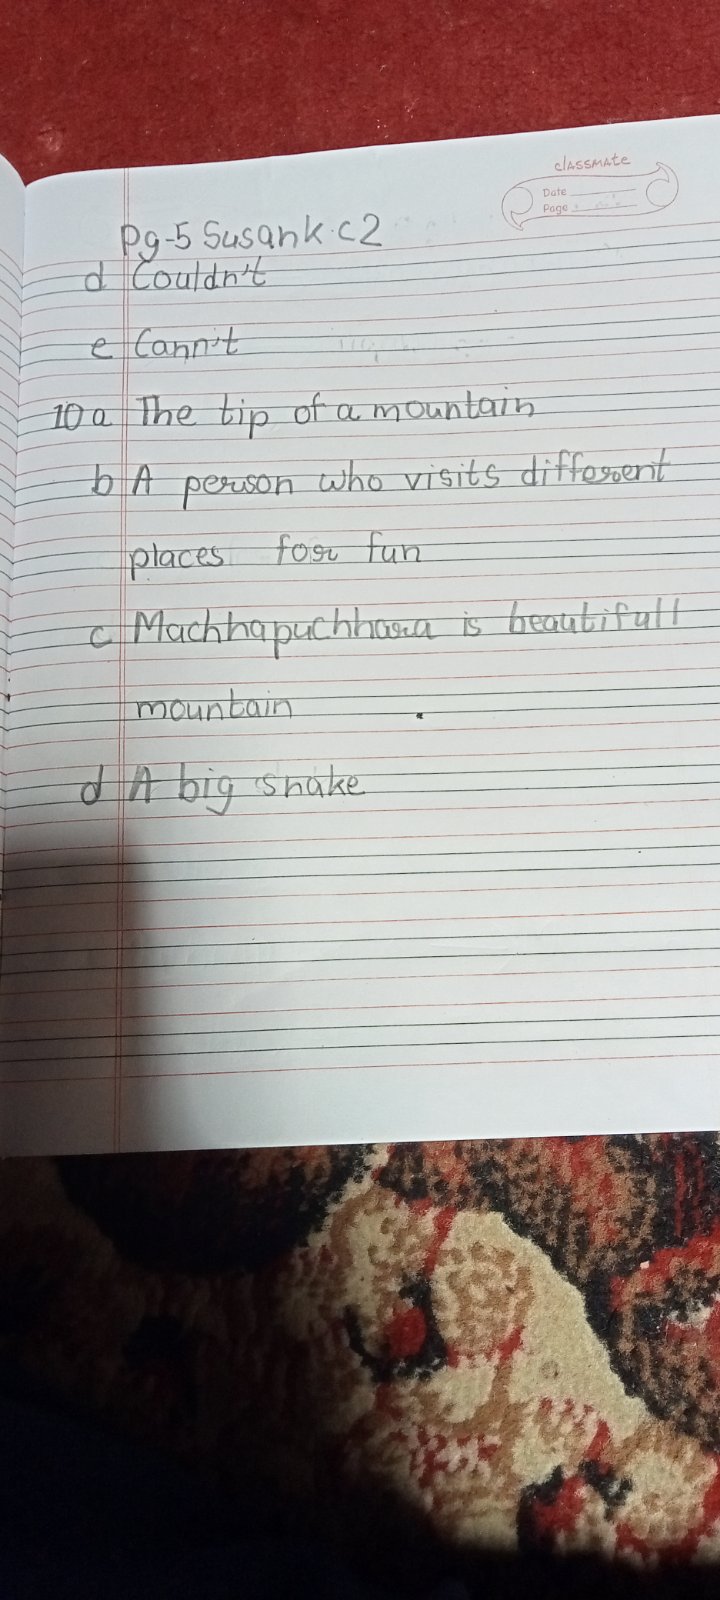 classmate
Date
Page
Pg-5 Susank.C2
d Couldn't
e Cann't
10 a The tip of a mountain
b A person who visits different
places for fun
c Machhapuchhara is beautifull
mountain
d A big snake